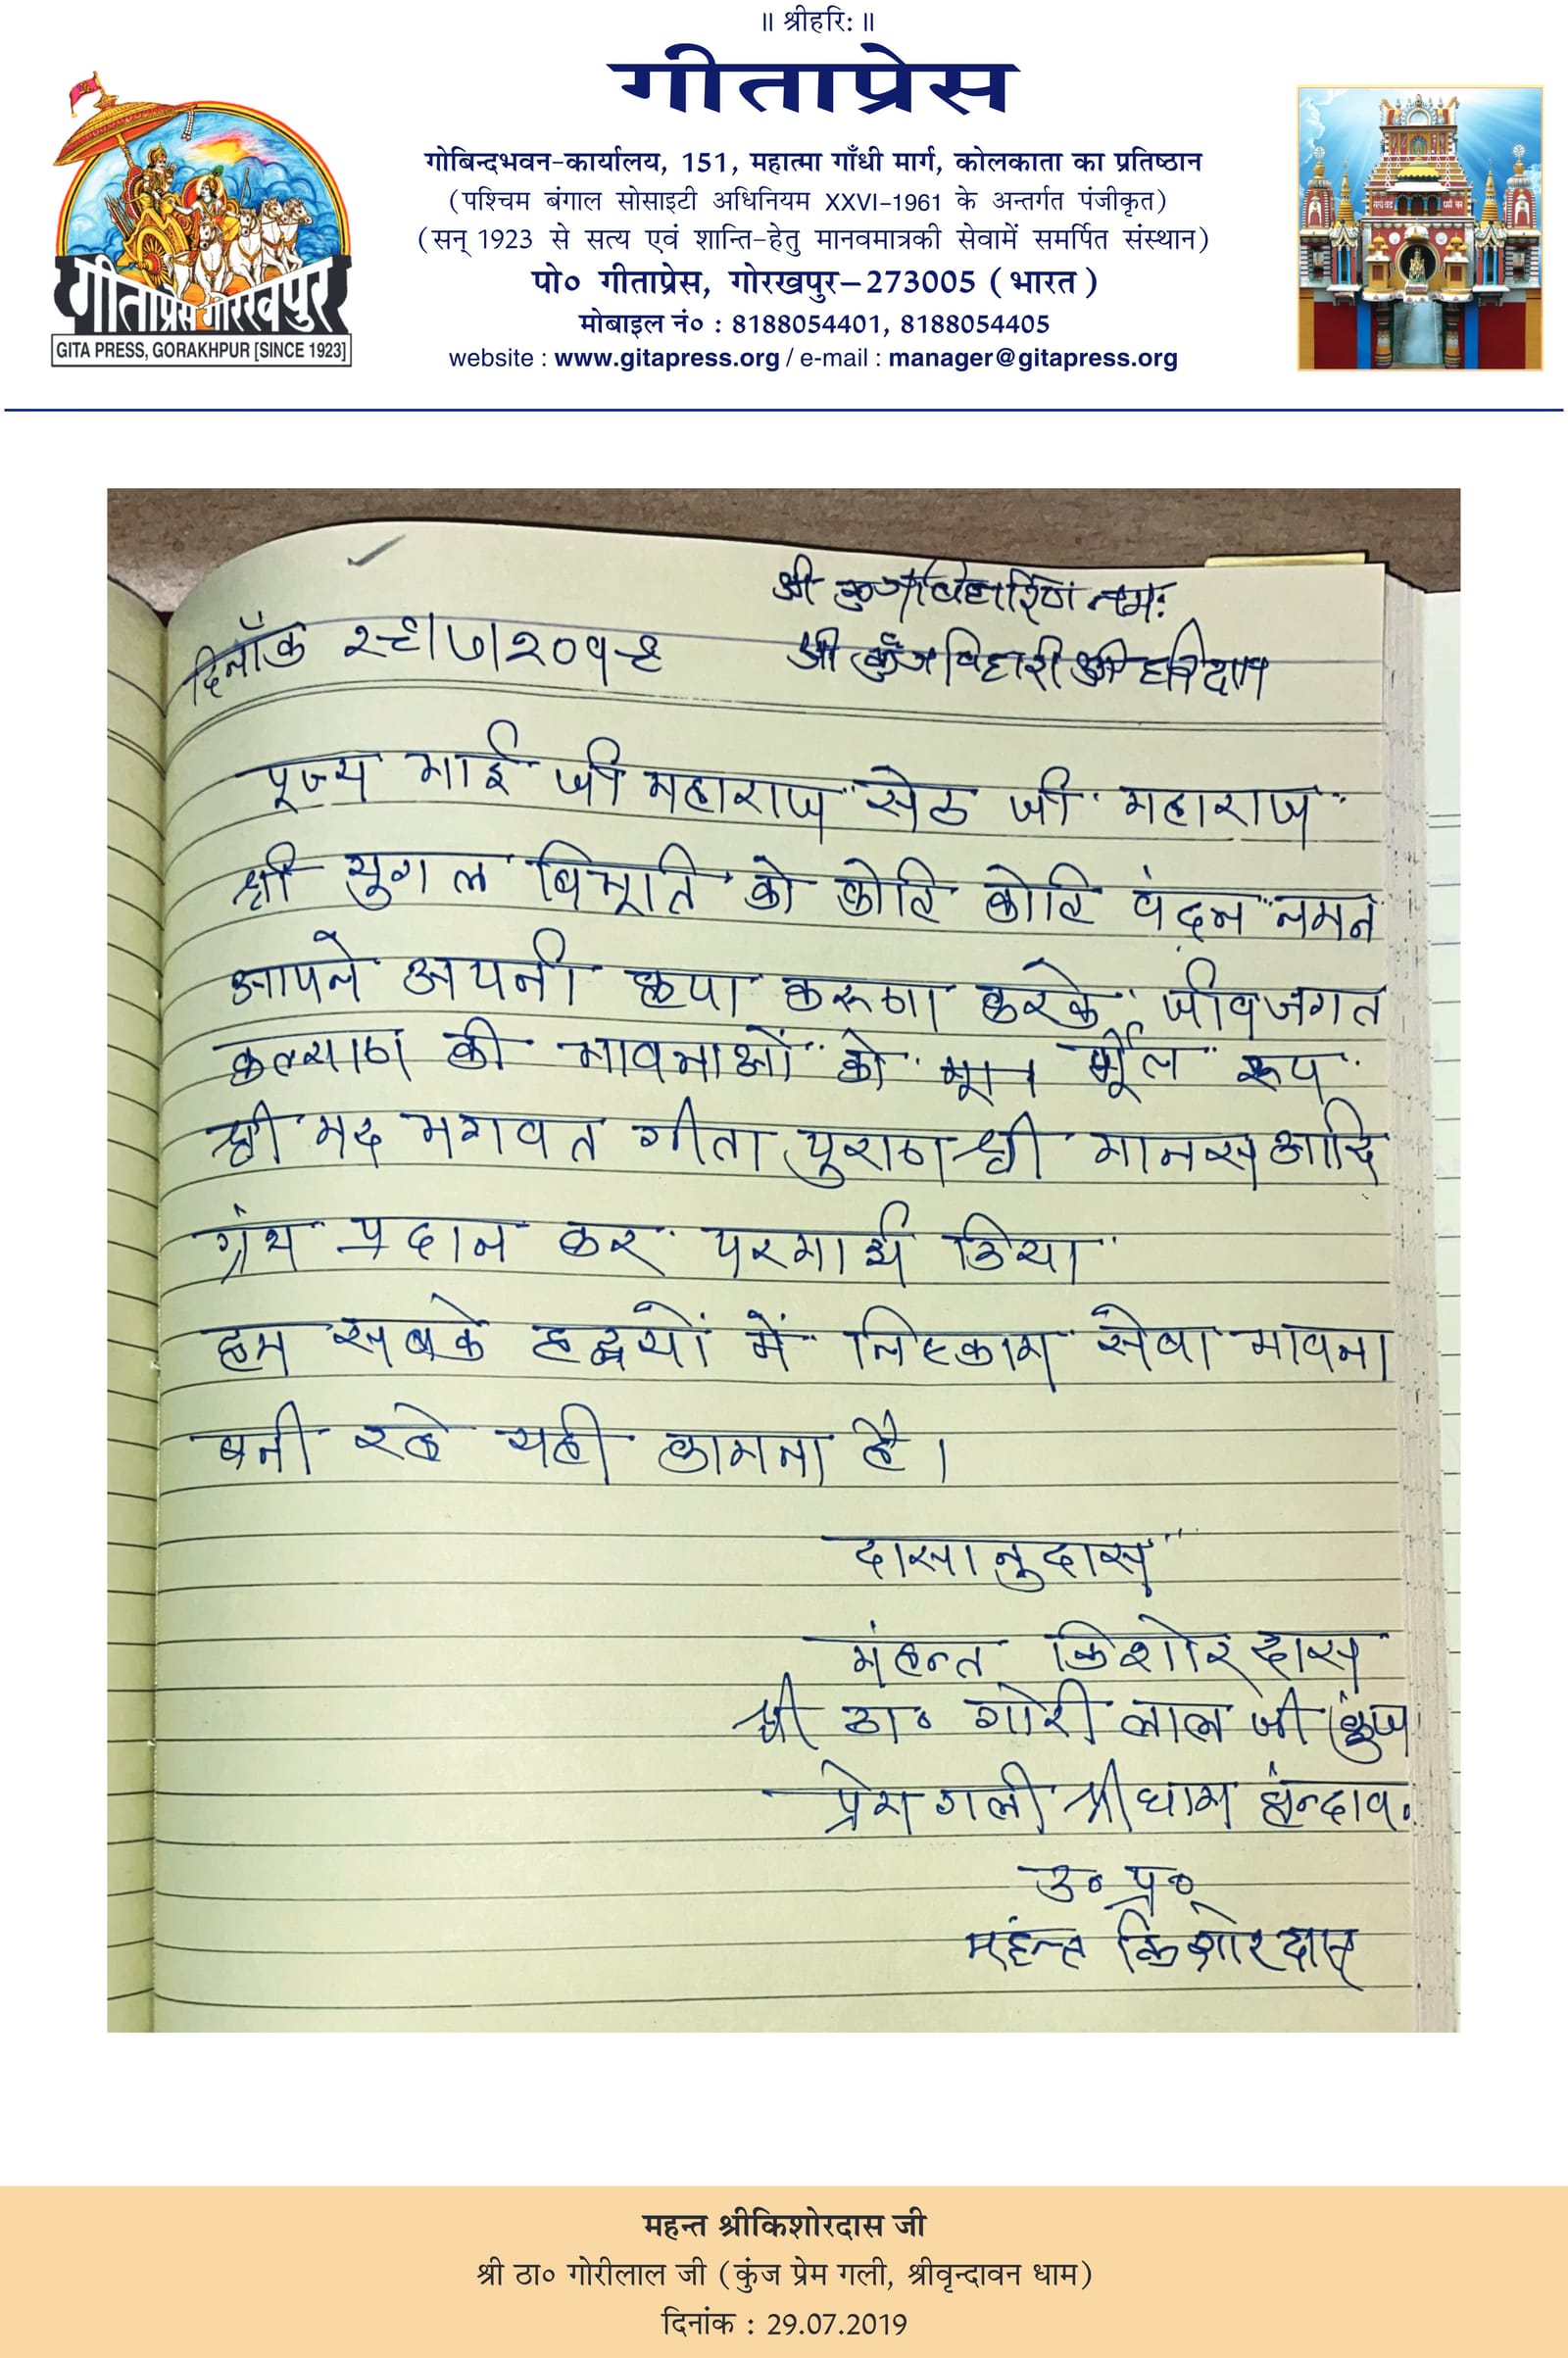 ॥ श्रीहरि: ॥
गीताप्रेस
गोबिन्दभवन-कार्यालय, 151, महात्मा गाँधी मार्ग, कोलकाता का प्रतिष्ठान
(पश्चिम बंगाल सोसाइटी अधिनियम XXVI-1961 के अन्तर्गत पंजीकृत)
(सन् 1923 से सत्य एवं शान्ति-हेतु मानवमात्रकी सेवामें समर्पित संस्थान)
पो० गीताप्रेस, गोरखपुर–273005 ( भारत )
मोबाइल नं० : 8188054401, 8188054405
website : www.gitapress.org / e-mail : manager@gitapress.org
गीताप्रेस गोरखपुर
GITA PRESS, GORAKHPUR [SINCE 1923]
श्री कुंजविहारिणे नमः
दिनाँक २९/७/२०१९ श्री कुँजविहारी श्री हरिदास
पूज्य भाई जी महाराज सेठ जी महाराज
श्री युगल विभूति को कोटि कोटि वंदन नमन
आपने अपनी कृपा करूणा करके जीवजगत
कल्याण की भावनाओं को रूप
श्री मद भगवत गीता पुराण श्री मानस आदि
ग्रंथ प्रदान कर परमार्थ किया
हम सबके हृदयों में निष्काम सेवा भावना
बनी रहे यही कामना है।
दासानुदास
मंहन्त किशोर दास
श्री ठा० गोरी लाल जी कुंज
प्रेम गली श्रीधाम वृन्दाव.
उ० प्र०
महन्त किशोर दास
महन्त श्रीकिशोरदास जी
श्री ठा० गोरीलाल जी (कुंज प्रेम गली, श्रीवृन्दावन धाम)
दिनांक : 29.07.2019